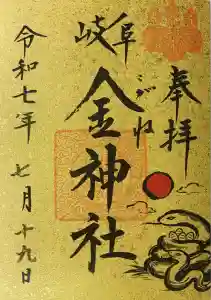 奉拝
岐阜
金神社
こがね
令和七年
七月十九日